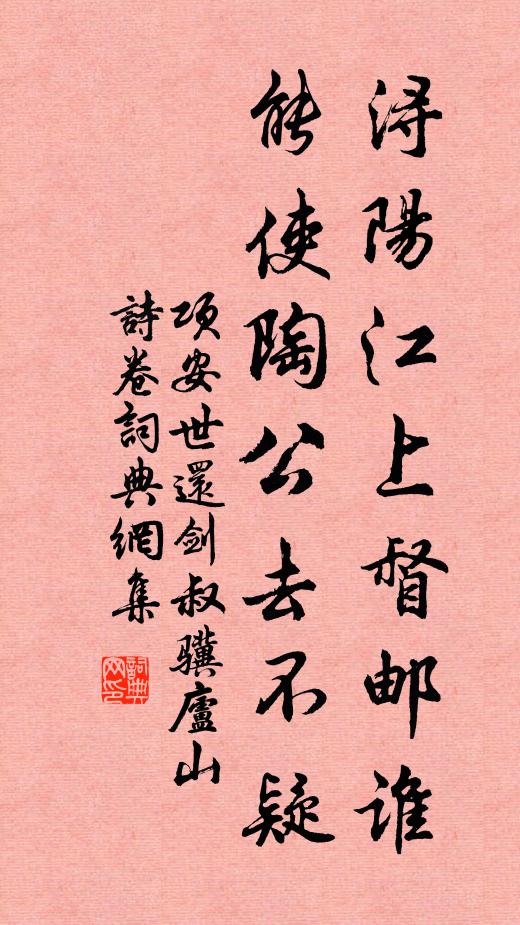 浔陽江上督邮谁
能使陶公去不疑
项安世還劍叔驥廬山
詩卷詞典網集
詞典网印